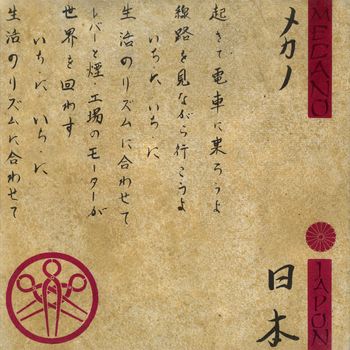 MECANO
JAPON
メカノ
日本
起きて電車に乗ろうよ
線路を見ながら行こうよ
いち、に いち、に
生活のリズムに合わせて
レバーと煙、工場のモーターが
世界を回わす
いち、に いち、に
生活のリズムに合わせて